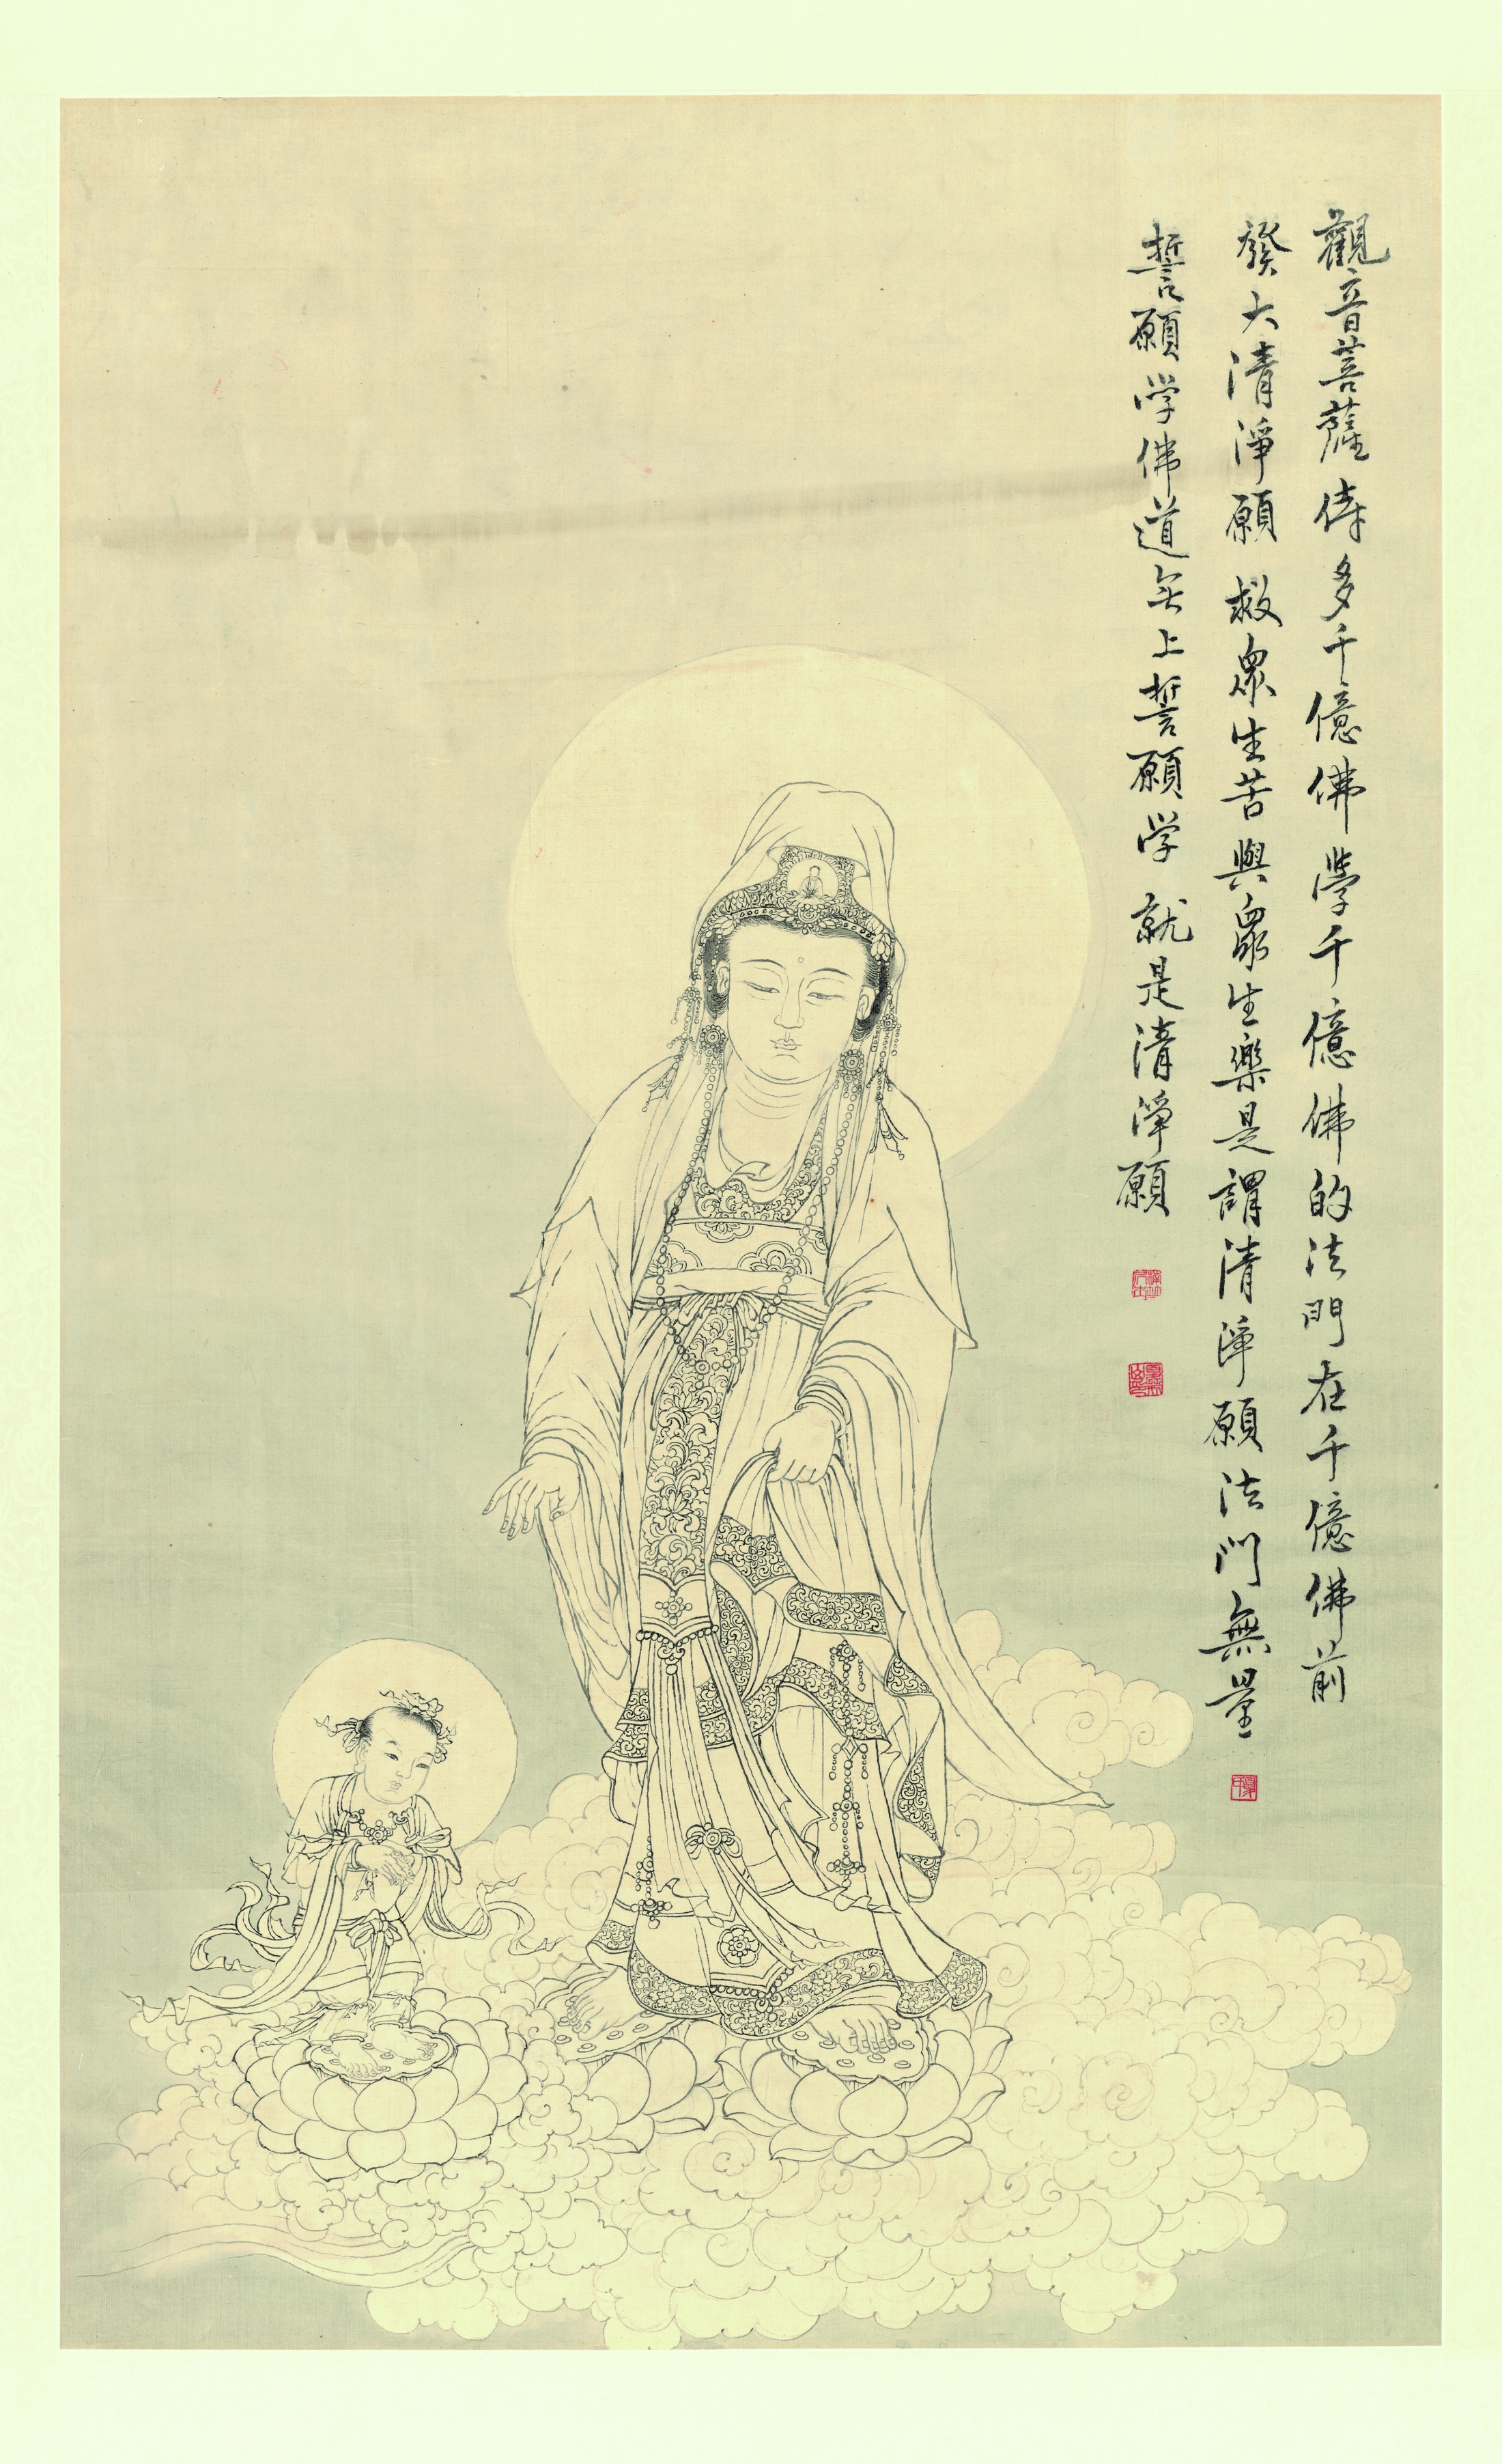 觀音菩薩侍多千億佛學千億佛的法門在千億佛前
發大清淨願救眾生苦與眾生樂是謂清淨願法門無量
誓願学佛道无上誓願学就是清淨願